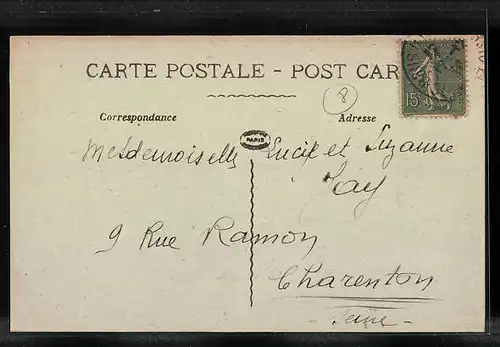 CARTE POSTALE - POST CAR
Correspondance
8
Adresse
PARIS
Mesdemoiselles Lucie et Suzanne
Jay
9 Rue Ramon
Charenton
- Seine -
15